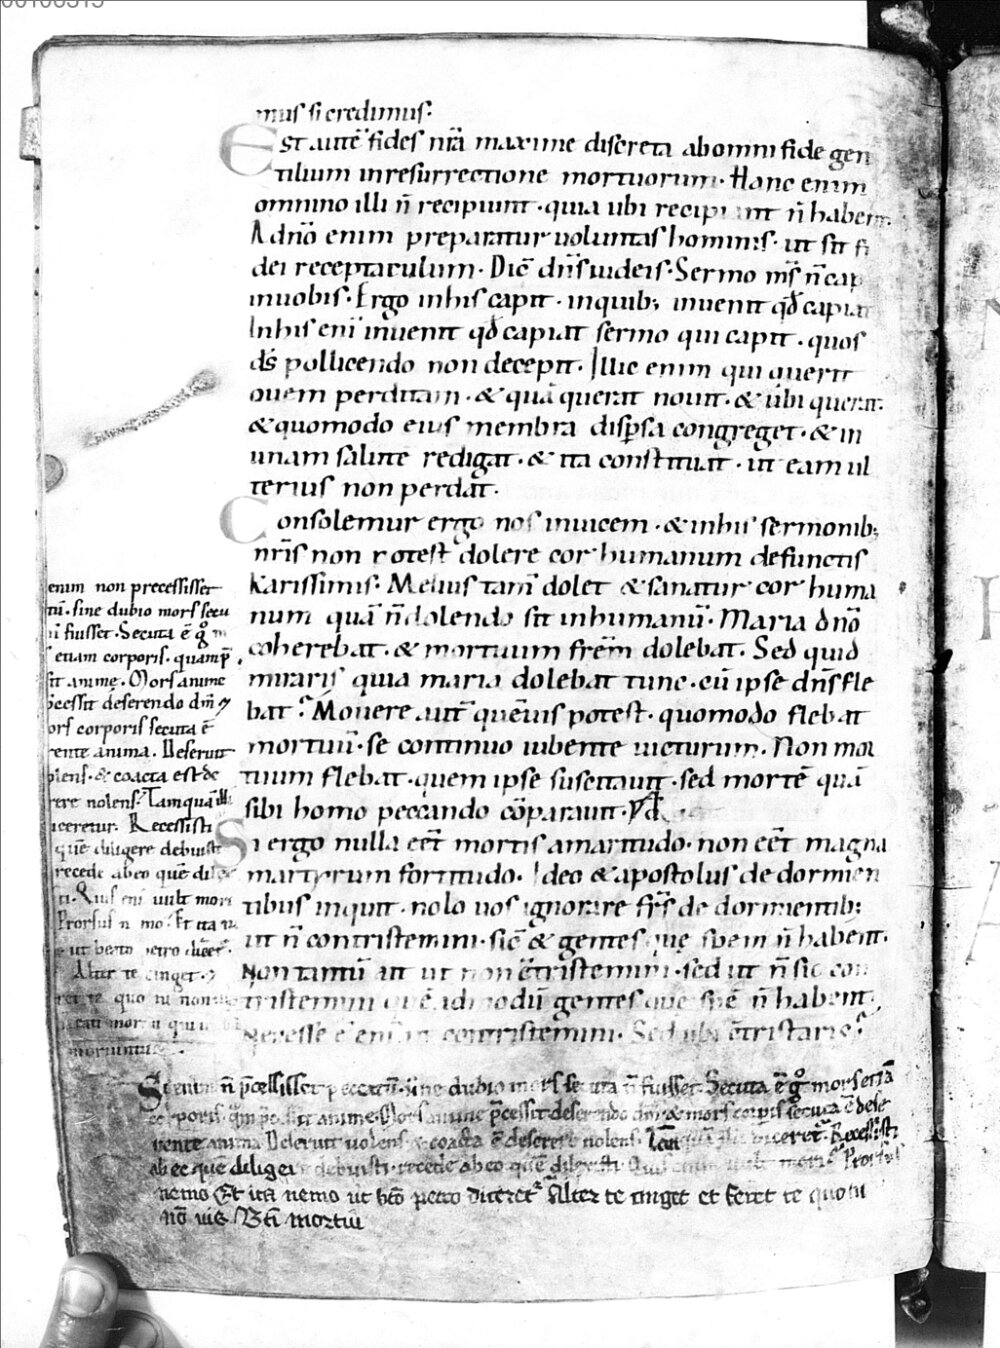 mus si credimus·
Est autē fides nr̄a maxime discreta ab omni fide gen
tilium in resurrectione mortuorum· Hanc enim
omnino illi n̄ recipiunt· quia ubi recipiant n̄ habent·
A dn̄o enim preparatur voluntas hominis· ut sit fi
dei receptaculum· Dic̄ dn̄s iudeis· Sermo ms̄ n̄ cap
in uobis· Ergo in his capit· in quib; inuenit qđ capiat
In his eni inuenit qđ capiat sermo qui capit· quos
dś pollicendo non decepit· Ille enim qui querit
ouem perditam· & quā querat nouit· & ubi querat·
& quomodo eius membra disp̄sa congreget· & in
unam salutē redigat· & ita constituat· ut eam ul
terius non perdat·
Consolemur ergo nos inuicem· & in his sermonib;
nr̄is non potest dolere cor humanum defunctis
karissimis· Melius tam̄ dolet & sanatur cor huma
num quā n̄ dolendo sit inhumanū· Maria dn̄o
coherebat· & mortuum frēm dolebat· Sed quid
miraris quia maria dolebat tunc· cū ipse dn̄s fle
bat? Mouere aut̄ quēuis potest· quomodo flebat
mortuū· se continuo iubente uicturum· Non mor
tuum flebat· quem ipse suscitauit· sed mortē quā
sibi homo peccando cōparauit·
Si ergo nulla eēt mortis amaritudo· non eēt magna
martyrum fortitudo· Ideo & apostolus de dormien
tibus inquit· nolo uos ignorare fr̄s de dormientib;
ut n̄ contristemini· sic̄ & gentes quę spem n̄ habent·
Non tantū ait ut non c̄tristemini· sed ut n̄ sic con
tristemini quēadmodū gentes quę spē n̄ habent·
Necesse ē enī ut contristemini· Sed ubi c̄tristaris?
enim non precessisset
sine dubio mors secu
n̄ fuisset· Secuta ē g̊ m
etiam corporis· quam p̄
sit animę· Mors anime
cessit deserendo dm̄
ors corporis secuta ē
rente anima· Deseruit
olens· & coacta est de
rere nolens· Tamquā illi
iceretur· Recessisti
quē diligere debuisti
recede ab eo quē dile
ti· Quis eni uult mori
Prorsus n mo· Et ita n
ut beato petro dic̄et·
Alter te cinget·
ret te quo tu non
moriuntur·
Si enim n̄ p̄cessisset peccatū· sine dubio mors secuta n̄ fuisset· Secuta ē g̊ mors etiā
corporis qm̄ p̄cessit anime· Mors anime p̄cessit deserendo dm̄ & mors corp̄is secuta ē dese
rente anima Deseruit uolens & coacta ē deserere nolens· Tan quā illi diceret̄· Recessisti
ab eo quē diligere debuisti· recede ab eo quē dilexisti· Quis enim uult mori? Prorsus
nemo Et ita nemo ut b̄to petro diceret̄ Alter te cinget et feret te quo tu
nō uis